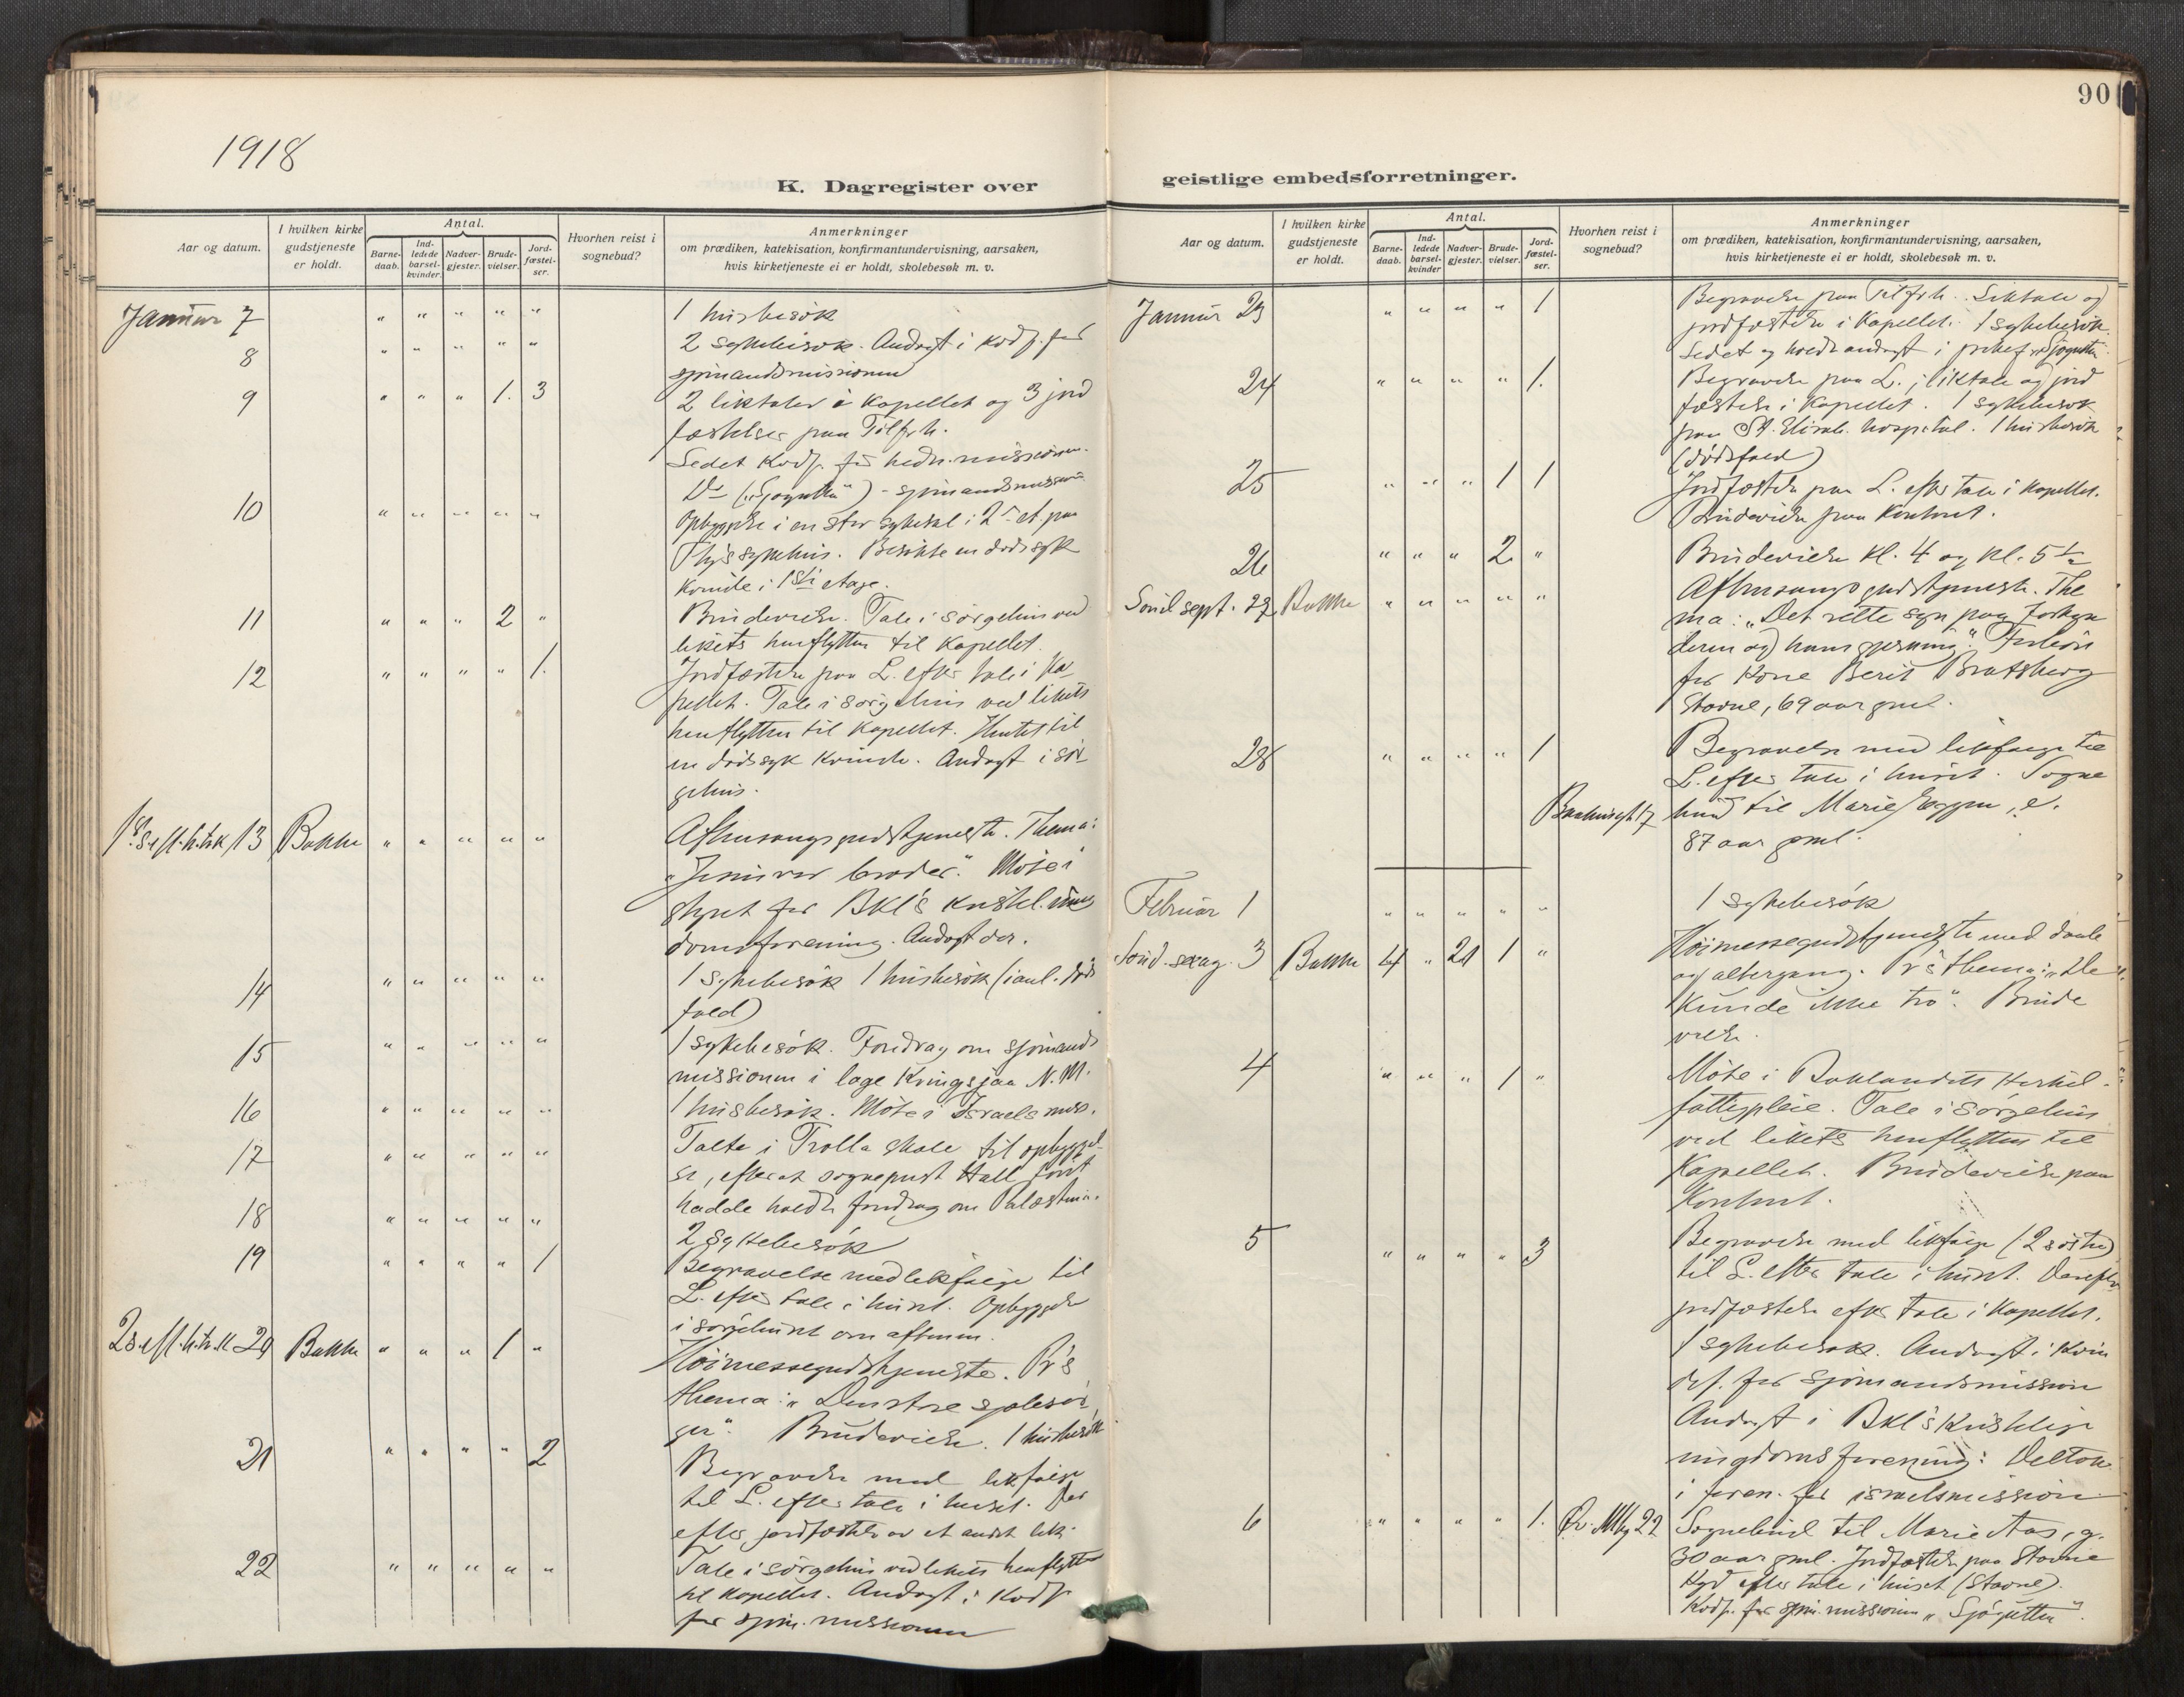 1918
K. Dagregister over
Aar og datum.
I hvilken kirke gudstjeneste er holdt.
Antal.
Barne-daab.
Ind-ledede barsel-kvinder.
Nadver-gjester.
Brude-vielser.
Jord-fæstel-ser.
Hvorhen reist i sognebud?
Anmerkninger
om prædiken, katekisation, konfirmantundervisning, aarsaken,
hvis kirketjeneste ei er holdt, skolebesøk m. v.
Januar 7 " " " " " 1 husbesøk
8 " " " " " 2 sykebesøk. Andagt i kvdf. for
sjømandsmissionen
9 " " " 1. 3 2 liktaler i kapellet og 3 jord
fæstelser paa Tilfrh.
Ledet Kvdf. for hedn.missionen.
Do ("Sjøgutten") - sjømandsmission
10 " " " " " Opbyggelse i en stor sykesal i 2den et. paa
sykehus. Besøkte en dødssyk
kvinde i 1ste etage.
11 " " " 2 " Brudevielse. Tale i sørgehus ved
likets henflytten til kapellet.
12 " " " " 1. Jordfæstelse paa L. efter tale i ka
pellet. Tale i sørgehus ved likets
henflytten til kapellet. Hentet til
en dødssyk kvinde. Andagt i sør
gehus.
1ste s. eft. h. tr. k. 13 Bakke " " " " " Aftensangsgudstjeneste. Thema:
"Jesus vor broder." Møte i
styret for Bkl's kristel. ung
domsforening. Andagt der.
14 " " " " " 1 sykebesøk 1 husbesøk (i anl. døds
fald)
15 " " " " " 1 sykebesøk. Foredrag om sjømands
missionen i loge Kringsjaa N. M.
16 " " " " " 1 husbesøk. Møte i Israelsmiss.
17 " " " " " Talte i Trolla skole til opbyggel-
se, efterat sogneprest Hall først
hadde holdt foredrag om Palæstina.
18 " " " " " 2 sykebesøk
19 " " " " 1 Begravelse med likfølge til
L. efter tale i huset. Opbyggelse
i sørgehuset om aftenen.
2 s. eft. h. tr. k. 20 Bakke " " " 1 " Høimessegudstjeneste. Pr's
thema: "Den store sjælesør
ger". Brudevielse. 1 husbesøk
21 " " " " 2 Begravelse med likfølge
til L. efter tale i huset. Der
efter jordfæstelse av et andet lik.
22 " " " " " Tale i sørgehus ved likets henflytten
til kapellet. Andagt i Kvdf.
for sjøm. missionen
90
geistlige embedsforretninger.
Aar og datum.
I hvilken kirke gudstjeneste er holdt.
Antal.
Barne-daab.
Ind-ledede barsel-kvinder
Nadver-gjester.
Brude-vielser.
Jord-fæstel-ser.
Hvorhen reist i sognebud?
Anmerkninger
om prædiken, katekisation, konfirmantundervisning, aarsaken,
hvis kirketjeneste ei er holdt, skolebesøk m. v.
Januar 23 " " " " 1 Begravelse paa Tilfrh. Liktale og
jordfæstelse i kapellet. 1 sykebesøk.
Ledet og holdt andagt i "Sjøgutten".
24 " " " " 1. Begravelse paa L.; liktale og jord
fæstelse i kapellet. 1 sykebesøk
paa St. Elisab. hospital. 1 husbesøk
(dødsfald)
25 " " " 1 1 Jordfæstelse paa L. efter tale i kapellet.
Brudevielse paa kontoret.
26 " " " 2 " Brudevielse kl. 4 og kl. 5 1/2
Sønd. sept. 27 Bakke " " " " " Aftensangsgudstjeneste. The
ma: "Det rette syn paa Forkyn
deren og hans gjerning." Forbøn
for kone Berit Bratsberg
Stavne, 69 aar gml.
28 " " " " 1 Begravelse med likfølge til
L. efter tale i huset. Sogne
bud til Marie Eggen, e.
87 aar gml.
Februar 1 " " " " " 1 sykebesøk
Sønd. sexag. 3 Bakke 4 " 21 1 " Høimessegudstjeneste med daab
og altergang. Pr's thema: "De
kunde ikke tro". Brude
vielse.
4 " " " 1 " Møte i Baklandets
fattigpleie. Tale i sørgehus
ved likets henflytten til
kapellet. Brudevielse paa
kontoret.
5 " " " " 3 Begravelse med likfølge (2 søstre)
til L. efter tale i huset. Derefter
jordfæstelse efter tale i kapellet.
1 sykebesøk. Andagt i Kvin
def. for sjømandsmission
Andagt i Bkl's kristelige
ungdomsforening: Deltok
i foren. for israelsmission
6 " " " " 1. Øv. Mllbg 22 Sognebud til Marie Aas, g.
30 aar gml. Jordfæstelse paa Stavne
kgd efter tale i huset (Stavne).
Kvdf. for sjøm. missionen "Sjøgutten".